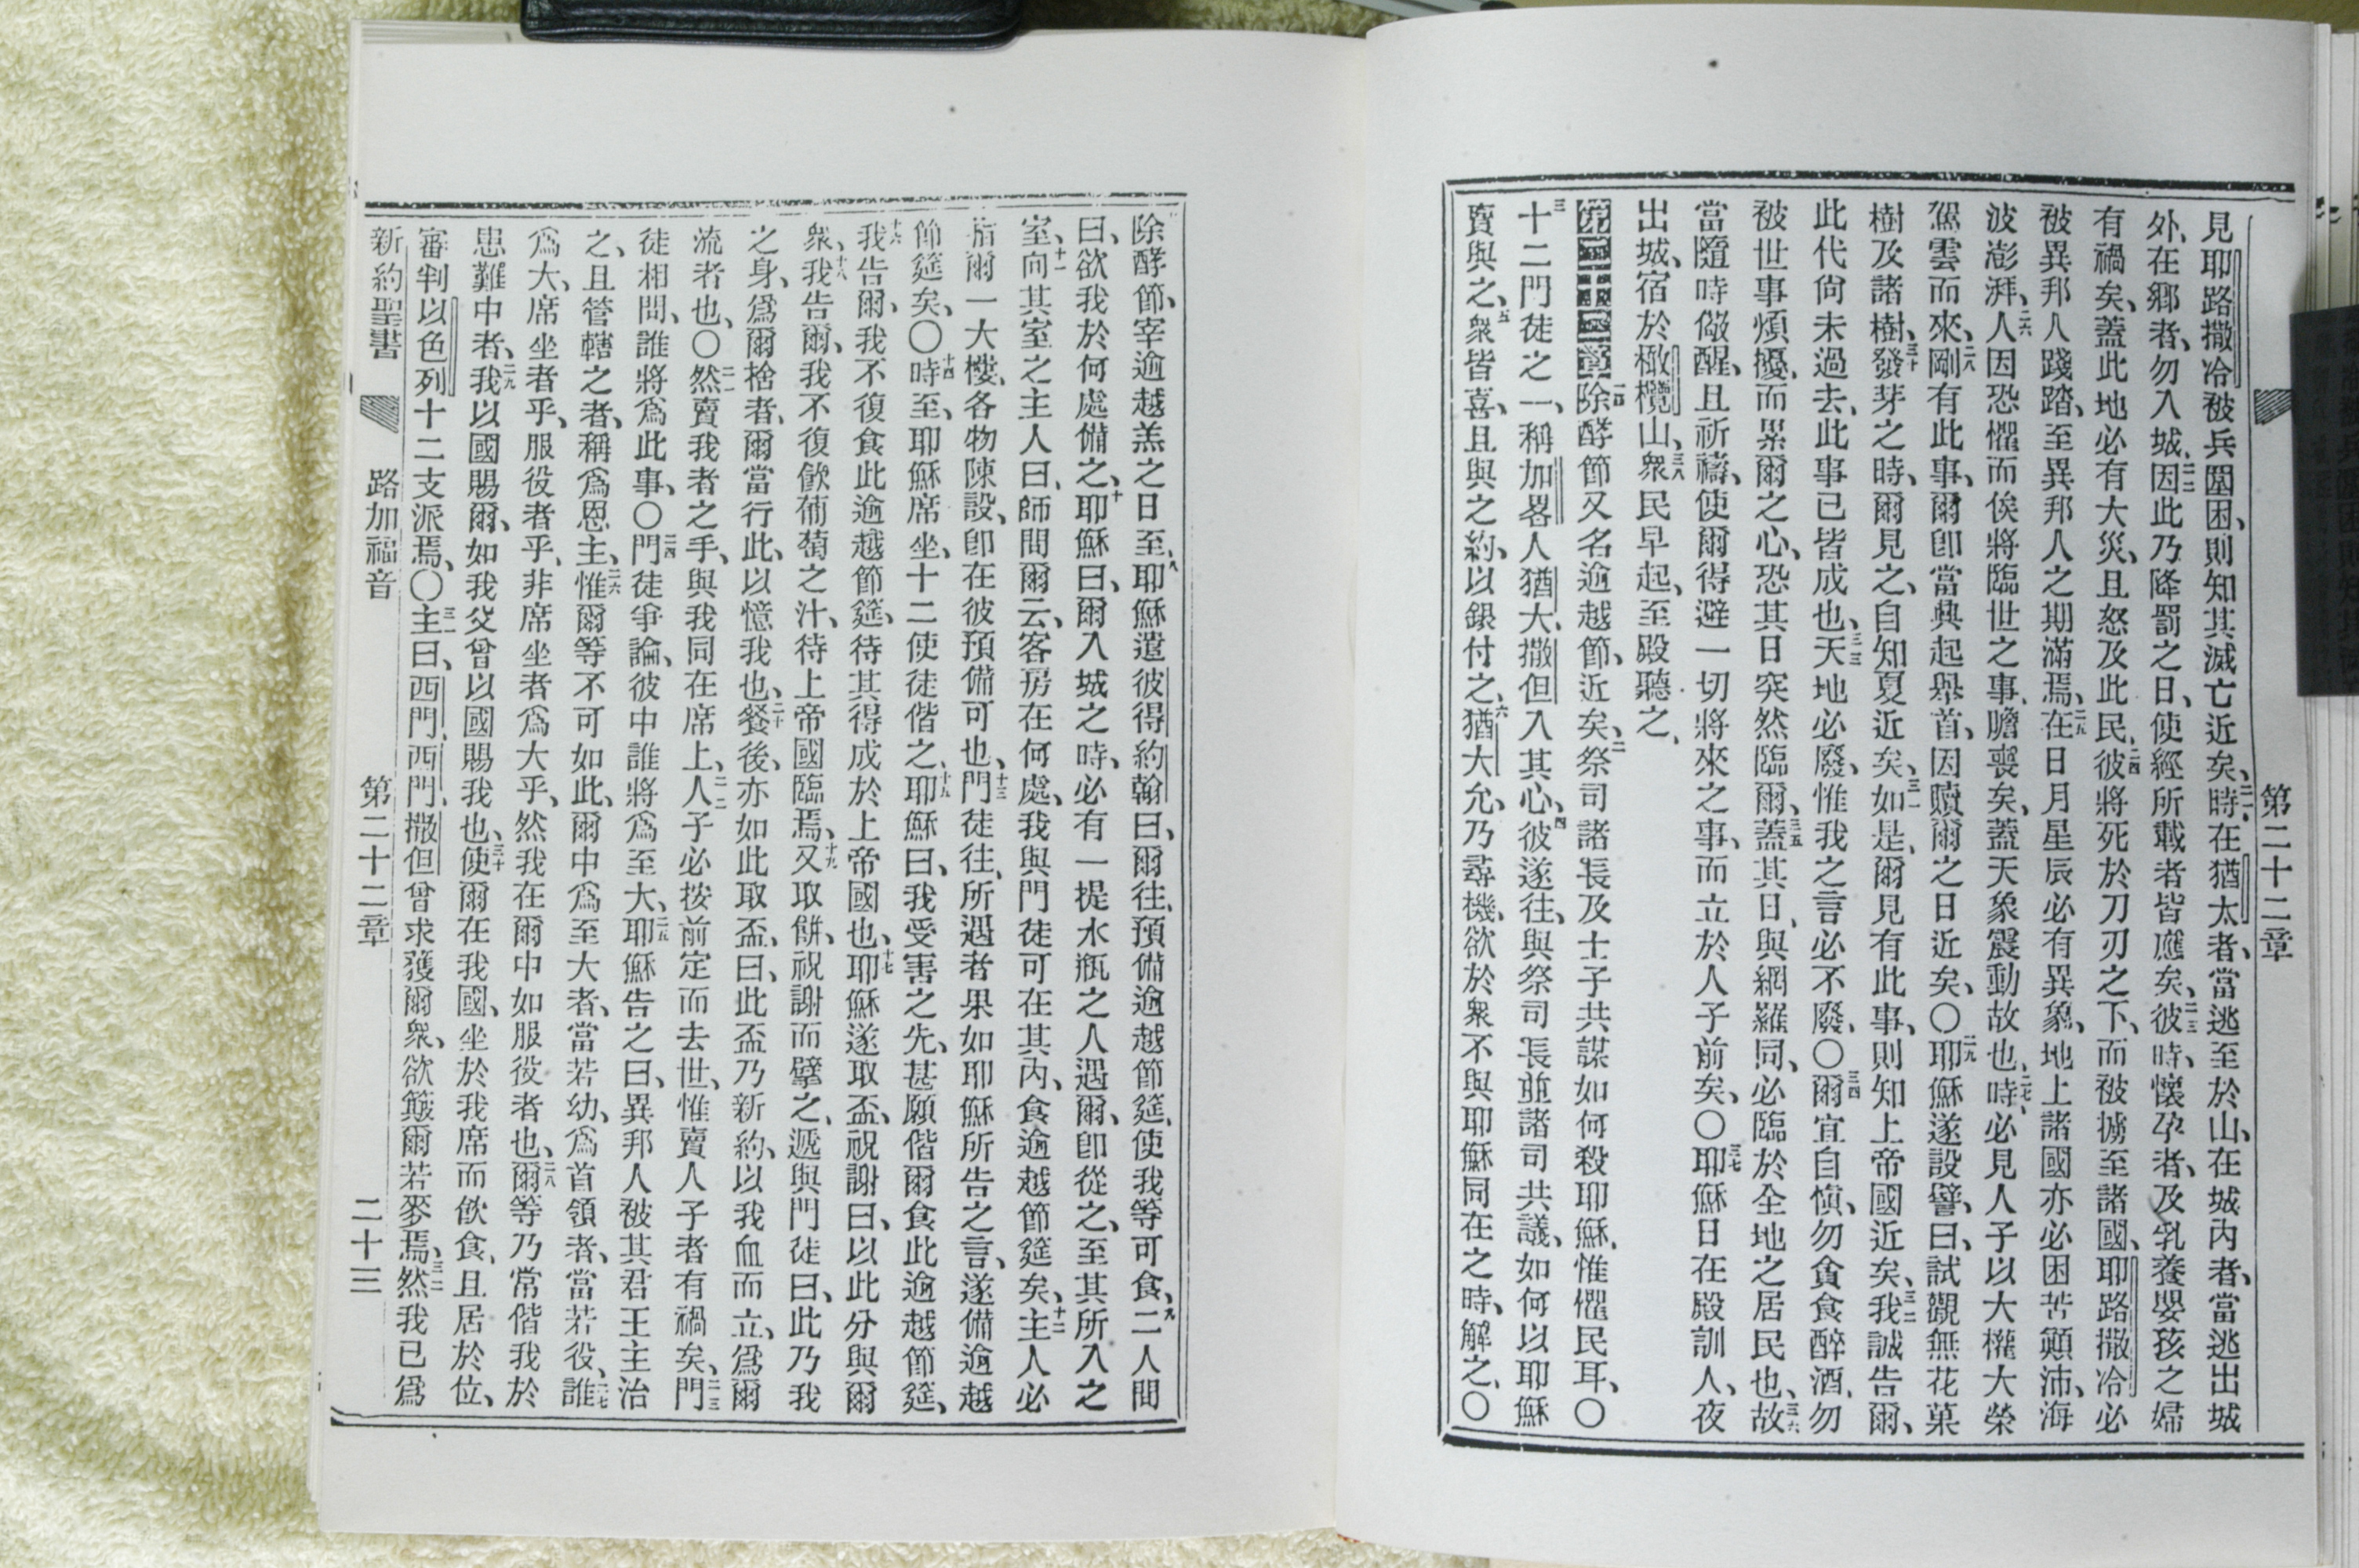 見耶路撒冷被兵圍困、則知其滅亡近矣、二一時在猶太者、當逃至於山、在城內者、當逃出城
外、在鄉者、勿入城、二二因此乃降罰之日、使經所載者皆應矣、二三彼時、懷孕者、及乳養嬰孩之婦
有禍矣、蓋此地必有大災、且怒及此民、二四彼將死於刀刃之下、而被擄至諸國、耶路撒冷必
被異邦人踐踏、至異邦人之期滿焉、二五在日月星辰必有異象、地上諸國亦必困苦顛沛、海
波澎湃、二六人因恐懼而俟將臨世之事、膽喪矣、蓋天象震動故也、二七時、必見人子以大權大榮
駕雲而來、二八剛有此事、爾卽當興起舉首、因贖爾之日近矣、〇二九耶穌遂設譬、曰、試觀無花菓
樹及諸樹、三十發芽之時、爾見之、自知夏近矣、三一如是、爾見有此事、則知上帝國近矣、三二我誠告爾、
此代尙未過去、此事已皆成也、三三天地必廢、惟我之言必不廢、〇三四爾宜自愼、勿貪食醉酒、勿
被世事煩擾、而累爾之心、恐其日突然臨爾、三五蓋其日、與網羅同、必臨於全地之居民也、三六故
當隨時儆醒、且祈禱、使爾得避一切將來之事、而立於人子前矣、〇三七耶穌日在殿訓人、夜
出城、宿於橄欖山、三八衆民早起、至殿聽之、
第二十二章一除酵節又名逾越節、近矣、二祭司諸長及士子共謀如何殺耶穌、惟懼民耳、〇
三十二門徒之一、稱加畧人猶大、撒但入其心、四彼遂往、與祭司長並諸司共議、如何以耶穌
賣與之、五衆皆喜、且與之約、以銀付之、六猶大允、乃尋機、欲於衆不與耶穌同在之時、解之、〇
第二十二章
除酵節、宰逾越羔之日至、八耶穌遣彼得約翰曰、爾往、預備逾越節筵、使我等可食、九二人問
曰、欲我於何處備之、十耶穌曰、爾入城之時、必有一提水瓶之人遇爾、卽從之、至其所入之
室、十一向其室之主人曰、師問爾云、客房在何處、我與門徒可在其內、食逾越節筵矣、十二主人必
指爾一大樓、各物陳設、卽在彼預備可也、十三門徒往、所遇者果如耶穌所告之言、遂備逾越
節筵矣、〇十四時至、耶穌席坐、十二使徒偕之、十五耶穌曰、我受害之先、甚願偕爾食此逾越節筵、
十六我告爾、我不復食此逾越節筵、待其得成於上帝國也、十七耶穌遂取盃、祝謝曰、以此分與爾
衆、十八我告爾、我不復飮葡萄之汁、待上帝國臨焉、十九又取餅、祝謝而擘之、遞與門徒曰、此乃我
之身、爲爾捨者、爾當行此、以憶我也、二十餐後、亦如此取盃、曰、此盃乃新約、以我血而立、爲爾
流者也、〇二一然賣我者之手、與我同在席上、二二人子必按前定而去世、惟賣人子者有禍矣、二三門
徒相問、誰將爲此事、〇二四門徒爭論、彼中誰將爲至大、二五耶穌告之曰、異邦人被其君王主治
之、且管轄之者、稱爲恩主、二六惟爾等不可如此、爾中爲至大者、當若幼、爲首領者、當若役、二七誰
爲大、席坐者乎、服役者乎、非席坐者爲大乎、然我在爾中如服役者也、二八爾等乃常偕我於
患難中者、二九我以國賜爾、如我父曾以國賜我也、三十使爾在我國、坐於我席而飮食、且居於位、
審判以色列十二支派焉、〇三一主曰、西門、西門、撒但曾求獲爾衆、欲簸爾若麥焉、三二然我已爲
新約聖書 路加福音 第二十二章 二十三